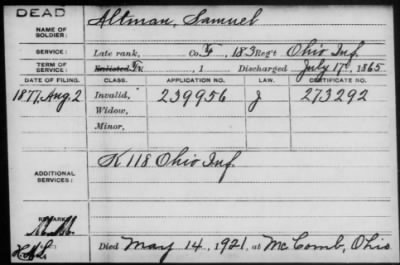 DEAD
NAME OF SOLDIER: Altman, Samuel
SERVICE: Late rank, Co. G, 183 Reg't Ohio Inf.
TERM OF SERVICE: Enlisted Tr., 1 Discharged July 17, 1865
DATE OF FILING. CLASS. APPLICATION NO. LAW. CERTIFICATE NO.
1877, Aug. 2 Invalid, 239956 J 273292
Widow,
Minor,
ADDITIONAL SERVICES: K 118 Ohio Inf.
REMARKS:
Died May 14, 1921, at McComb, Ohio